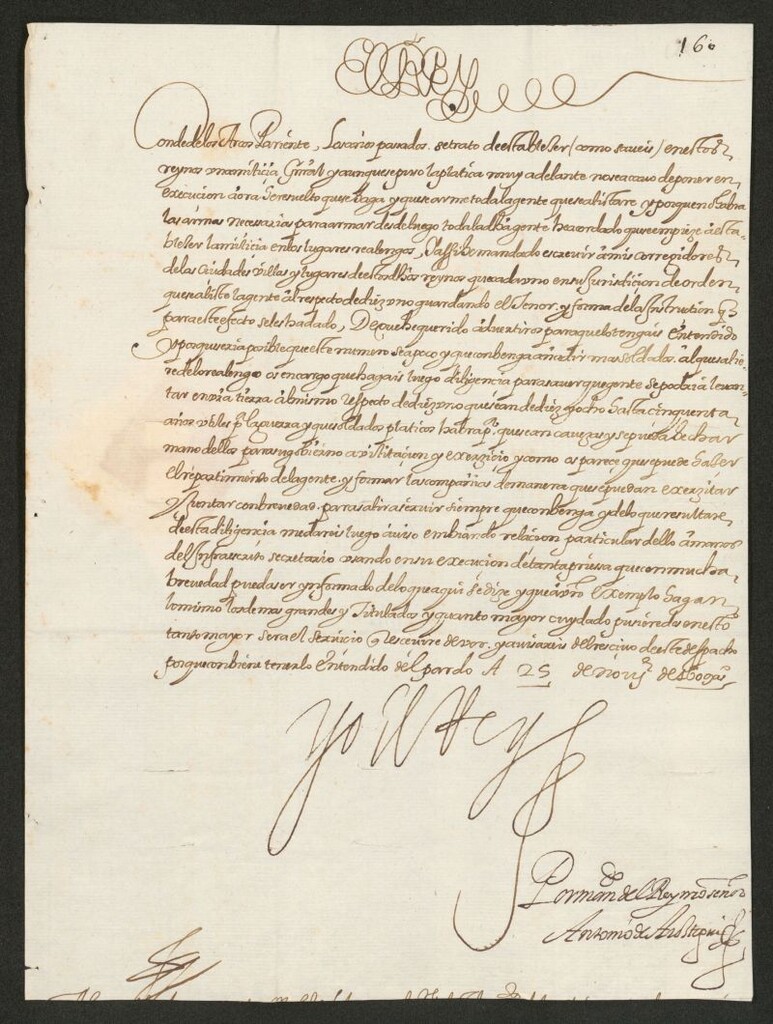 160
El Rey
Conde de los Arcos Pariente, los años pasados. se trato de establesser (como saveis) en estos
reynos una milicia Genral y aunque se puso la platica muy adelante no se acavo de poner en
execucion aora se resuelto que se haga y que se arme toda la gente que se alistare y porque no habra
las armas necessarias para armar desde luego toda la dha gente he acordado que se empieze a esta-
blesser la milicia en los lugares realengos, y assi he mandado escrevir a mis corregidores
de las Ciudades villas y lugares de estos dhos reynos que cada uno en su jurisdicion de orden
que se aliste la gente al respecto de diez uno guardando el tenor. y forma de la Instrution q
para este efecto se les ha dado, De que he querido advertiros para que lo tengais entendido
y porque seria posible que este numero sea poco y que conbenga añadir mas soldados. al que salie-
re de lo realengo os encargo que hagais luego diligencia para saver que gente se podria levan-
tar en vra tierra al mismo respecto de diez uno que sean de diez y ocho hasta cinquenta
años utiles pa la guerra y que soldados platicos habra pa. que sean cavezas y se pueda echar
mano dellos para su govierno avilitacion y exerzicio y como os parece que se puede haber
el repartimiento de la gente. y formar las compañias de manera que se puedan exerzitar
y Juntar con brevedad. para salir a servir siempre que conbenga y de lo que resultare
de esta diligencia me dareis luego aviso embiando relacion particular dello a manos
del Infraescrito secretario usando en su execucion de tanta priessa que con mucha
brevedad pueda ser ynformado de lo que aqui se dize y que a vro exemplo hagan
lo mismo los demas grandes y Titulados y quanto mayor cuydado pusieredes en esto
tanto mayor sera el servicio q rescevire de vos. y avisareis del rescivo de este despacho
porque conbiene tenerlo entendido del pardo A 25 de novie de 1609 as
yo el Rey
Por mando del Rey nro señor
Antonio de Aroztegui